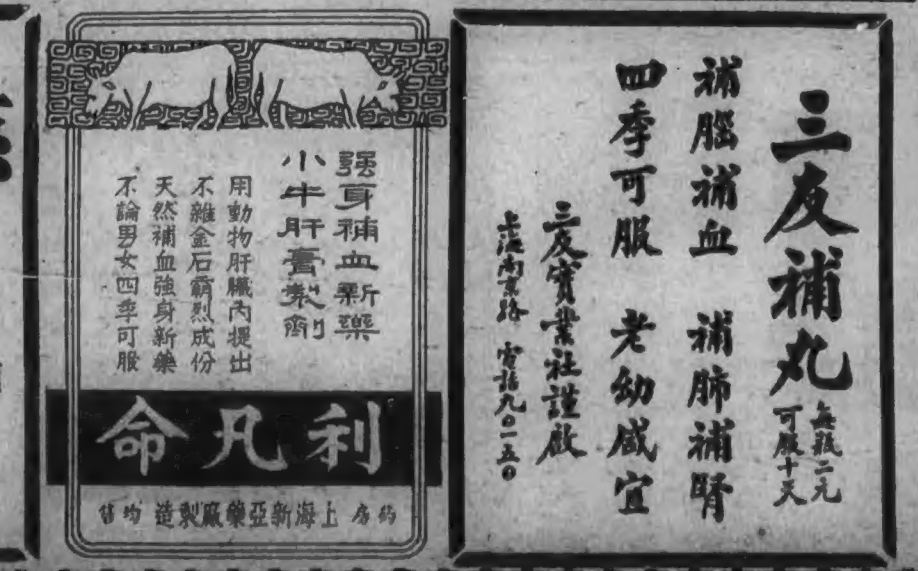 三友補丸
每瓶二元
可服十天
補腦補血　補肺補腎
四季可服　老幼咸宜
三友實業社謹啟
上海南京路　電話九〇一五〇
強身補血新藥
小牛肝膏製劑
用動物肝臟內提出
不雜金石霸烈成份
天然補血強身新藥
不論男女四季可服
利凡命
上海新亞藥廠製造
藥房均售